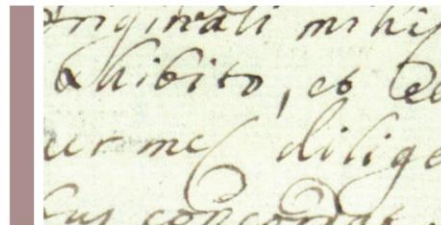 originali mihi
exhibito, et
per me dilige
concordat